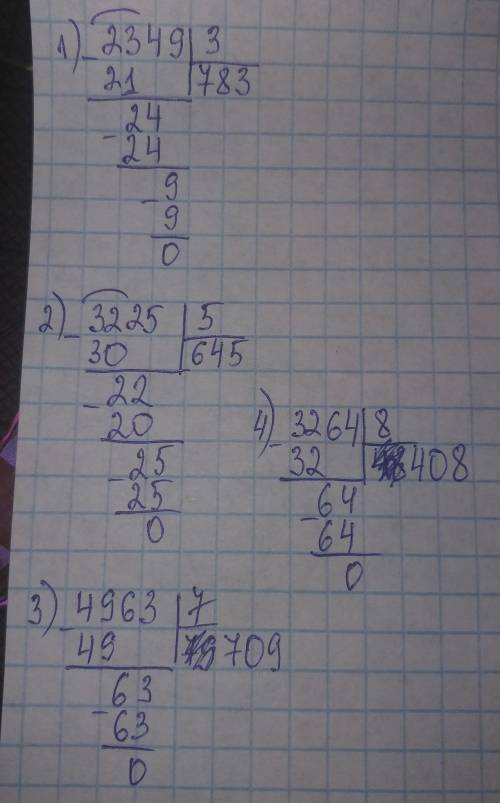 1) - 2349 | 3
21 | 783
- 24
24
- 9
9
0
2) - 3225 | 5
30 | 645
- 22
20
- 25
25
0
4) - 3264 | 8
32 | 408
- 64
64
0
3) - 4963 | 7
49 | 709
- 63
63
0